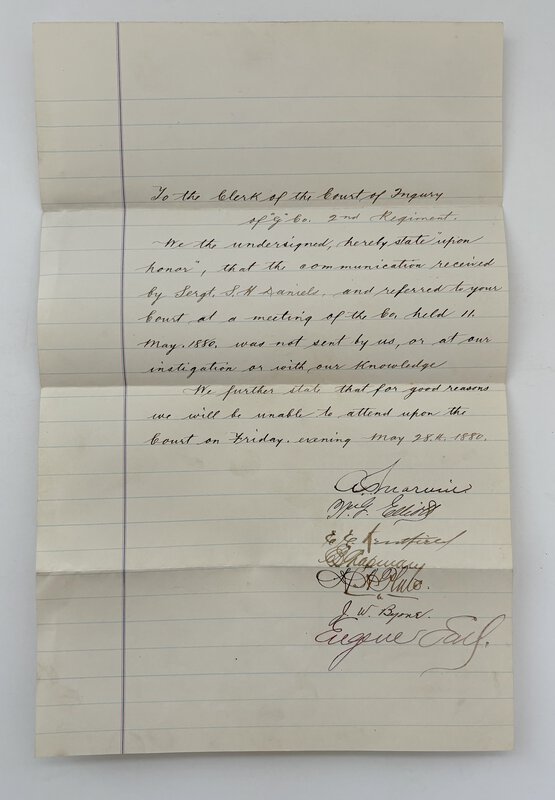 To the Clerk of the Court of Inqury
of "G" Co. 2nd Regiment.
We the undersigned, hereby state "upon
honor", that the communication received
by Sergt. S. H. Daniels, and referred to your
Court at a meeting of the Co. held 11.
May. 1880. was not sent by us, or at our
instigation or with our Knowledge
We further state that for good reasons
we will be unable to attend upon the
Court on Friday. evening May 28th. 1880.
Marvin
Wm. G. Elliott
E. E.
Chapman
J. W. Byone.
Eugene Earl.